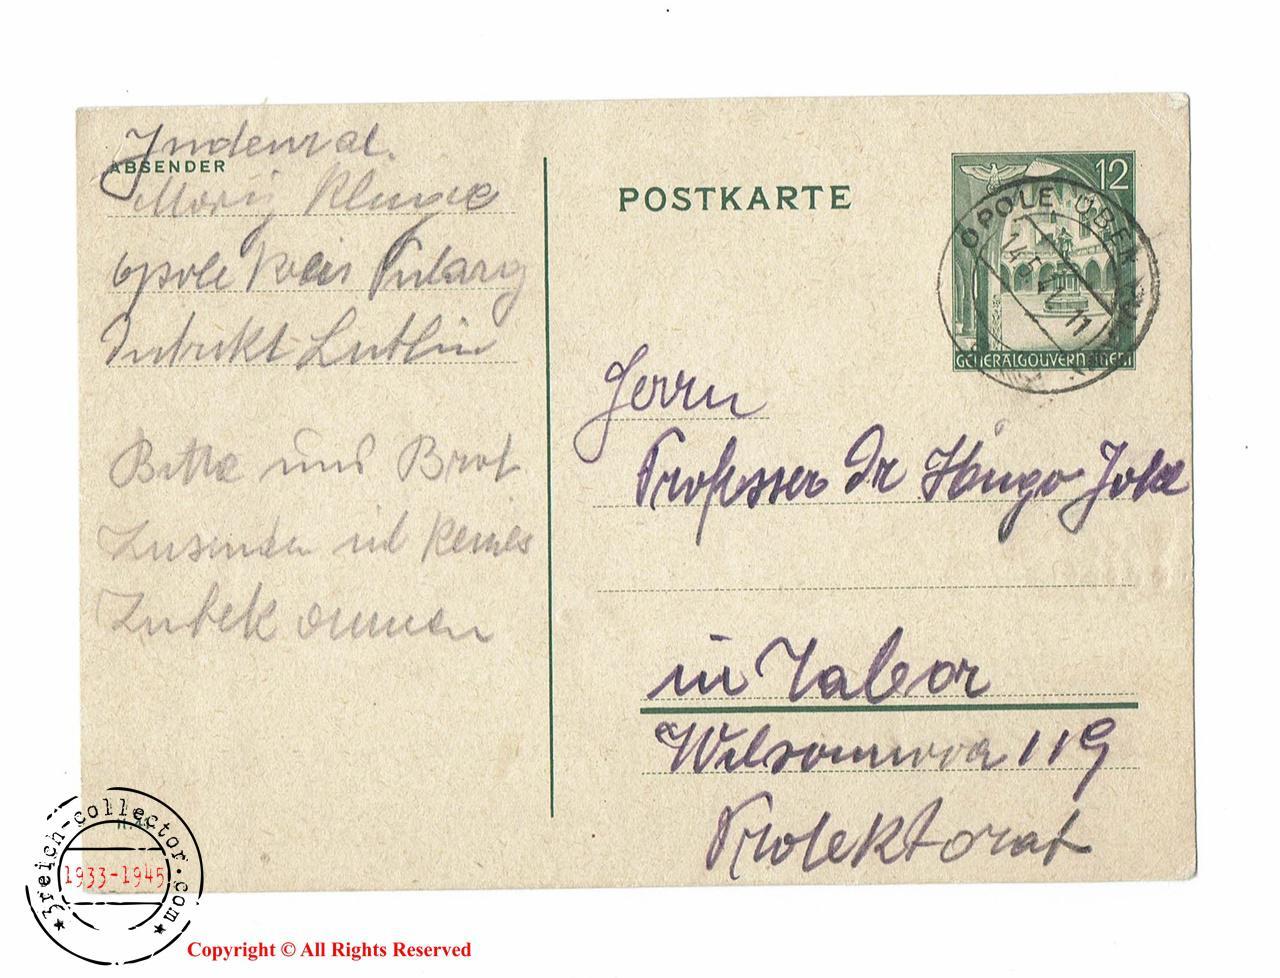 Judenrat.
ABSENDER
Moriz
Opole Kreis Pulawy
Distrikt Lublin
Bitte und Brot
Zusenden
Zubekommen
POSTKARTE
12
OPOLE ÜBER
14.5.41.11
GENERALGOUVERNEMENT
Herrn
Professer Dr Hugo
in Tabor
Wilsonova 119
Protektorat
3reich-collector.com
1933-1945
Copyright © All Rights Reserved